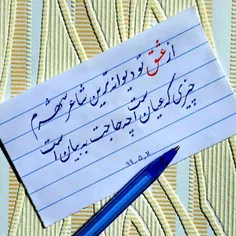 از عشق تو دیوانه ترین شاعر شهرم
چیزی که عیان است چه حاجت به بیان است